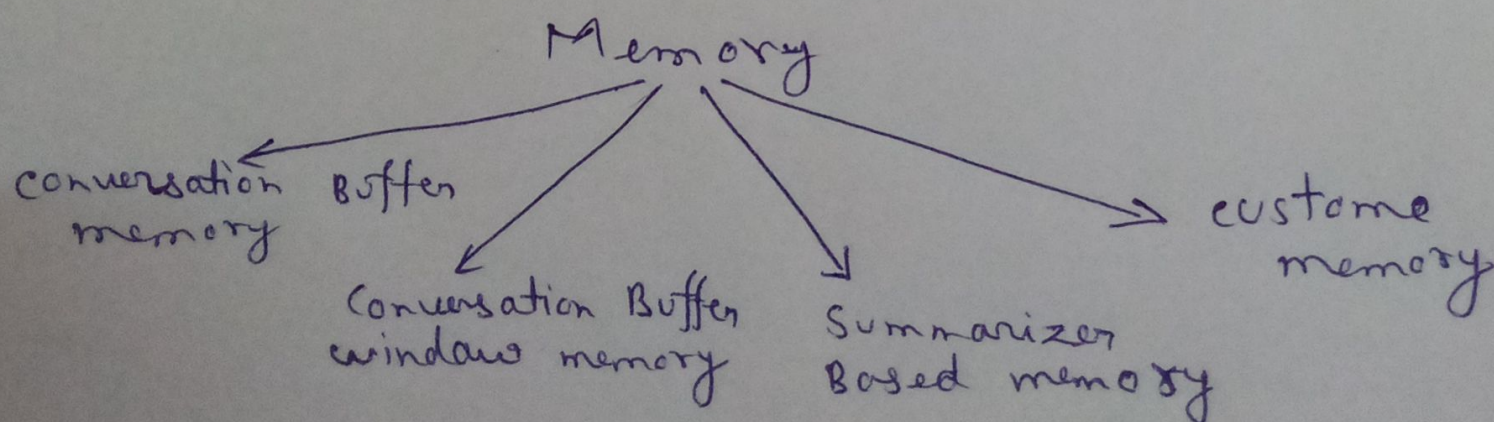 Memory
conversation Buffer
memory
Conversation Buffer
window memory
Summarizer
Based memory
custome
memory